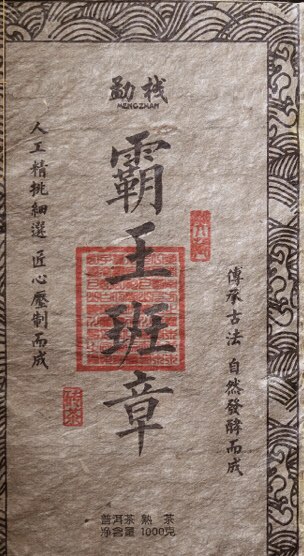 勐栈
MENGZHAN
霸王班章
傳承古法 自然發酵而成
人工精挑細選 匠心壓制而成
普洱茶 熟 茶
净含量 1000克